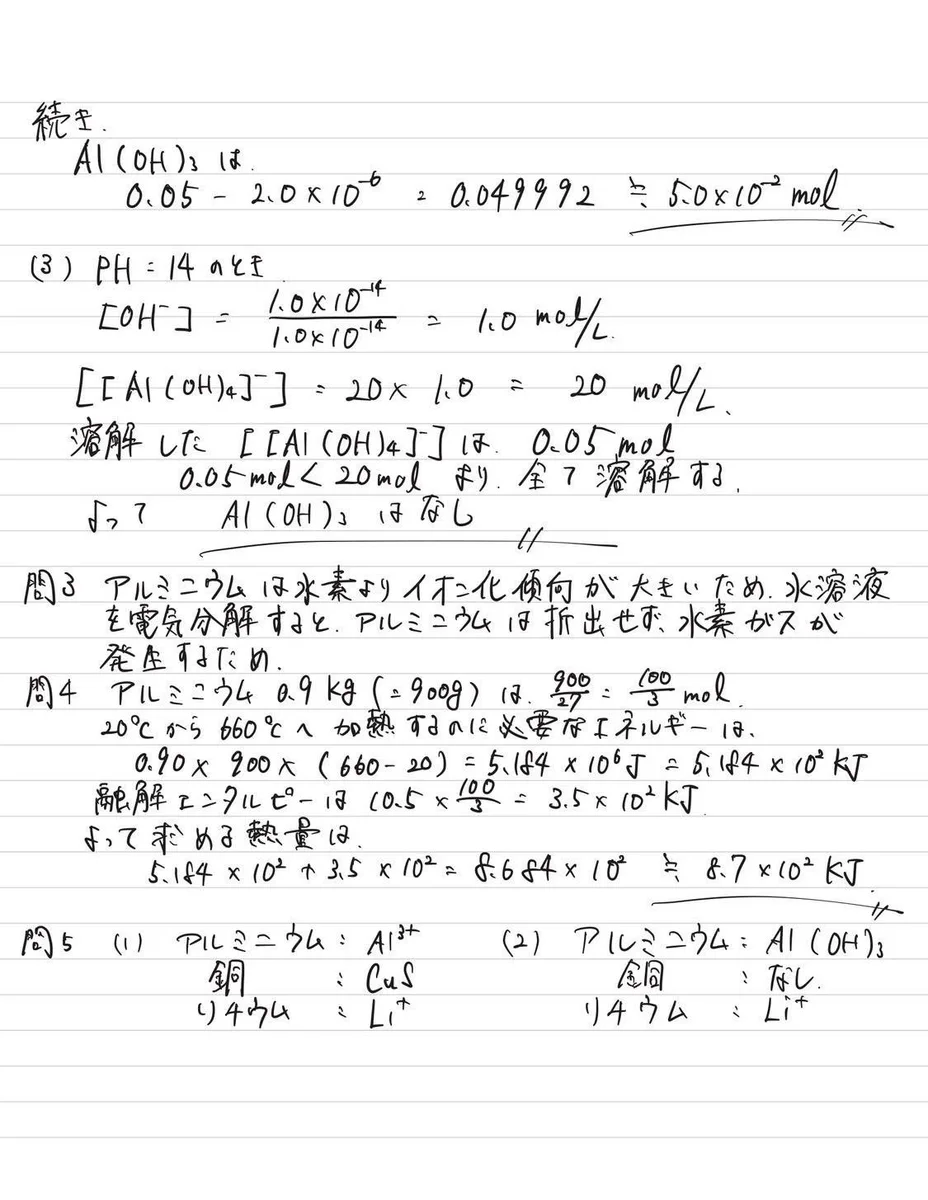 続き.
Al(OH)₃ は.
0.05 - 2.0×10⁻⁶ = 0.049992 ≒ 5.0×10⁻² mol.
(3) PH = 14 のとき
[OH⁻] = 1.0×10⁻¹⁴/1.0×10⁻¹⁴ = 1.0 mol/L.
[[Al(OH)₄]⁻] = 20 × 1.0 = 20 mol/L.
溶解した [[Al(OH)₄]⁻] は. 0.05 mol
0.05 mol < 20 mol より. 全て溶解する.
よって Al(OH)₃ はなし
問3 アルミニウムは水素よりイオン化傾向が大きいため. 水溶液
を電気分解すると. アルミニウムは折出せず、水素ガスが
発生するため.
問4 アルミニウム 0.9 kg (=900g) は. 900/27 = 100/3 mol.
20℃から660℃へ加熱するのに必要なエネルギーは、
0.90 × 900 × (660-20) = 5.184 × 10⁶ J = 5.184 × 10² KJ
融解エンタルピーは 10.5 × 100/3 = 3.5 × 10² KJ.
よって求める熱量は.
5.184 × 10² + 3.5 × 10² = 8.684 × 10² ≒ 8.7 × 10² KJ.
問5 (1) アルミニウム : Al³⁺ (2) アルミニウム : Al(OH)₃
銅 : CuS 銅 : なし.
リチウム : Li⁺ リチウム : Li⁺